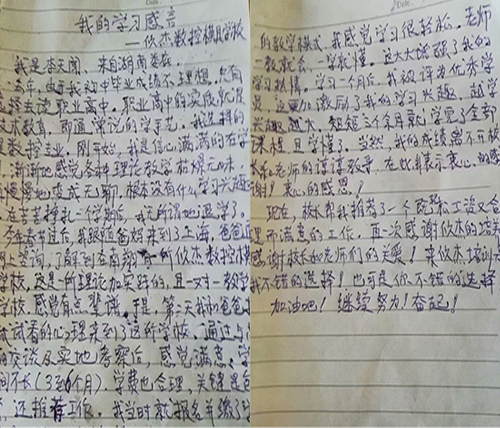 我的学习感言
——依杰数控模具学校
我是李天阔，来自湖南娄底
去年，由于我初中毕业成绩不理想，只有
选择去读职业高中，职业高中的实质就是
技术教育，即通常说的学手艺，我选择的
是数控专业，刚开始，我是信心满满的在学
，渐渐地感觉各种理论教学枯燥无味，
慢慢地变成无聊，根本没有什么学习兴趣
在苦苦挣扎二个学期后，我无所谓地退学了。
今年春节过后，我跟随爸妈来到了上海，爸爸
网上咨询，了解到在南翔有所依杰数控模
学校，这是所理论加实践的，且一对一教学
学校，感觉有点靠谱。于是，第二天我和爸爸
我试看的心理来到了这所学校，通过与
的交谈及实地考察后，感觉满意，学
间不长（3至6个月），学费也合理，关键是包
，还推荐工作。我当时就报名并缴
的教学模式，我感觉学习很轻松。老师
一教就会，一学就懂。这大大提醒了我的
学习热情。学习一个月后，我被评为优秀学
员，这更加激励了我的学习兴趣，越学
兴趣越大，短短三个余月就学完了全部
课程且学懂了。当然，我的成绩离不开
校长和老师的谆谆教导，在此表示衷心的感
谢！衷心的感恩！
现在，校长帮我推荐了一个既靠工资又合
理而满意的工作，再一次感谢依杰的培养
感谢校长和老师们的关爱！来依杰培训是
我不错的选择！也可是你不错的选择
加油吧！继续努力！奋起！